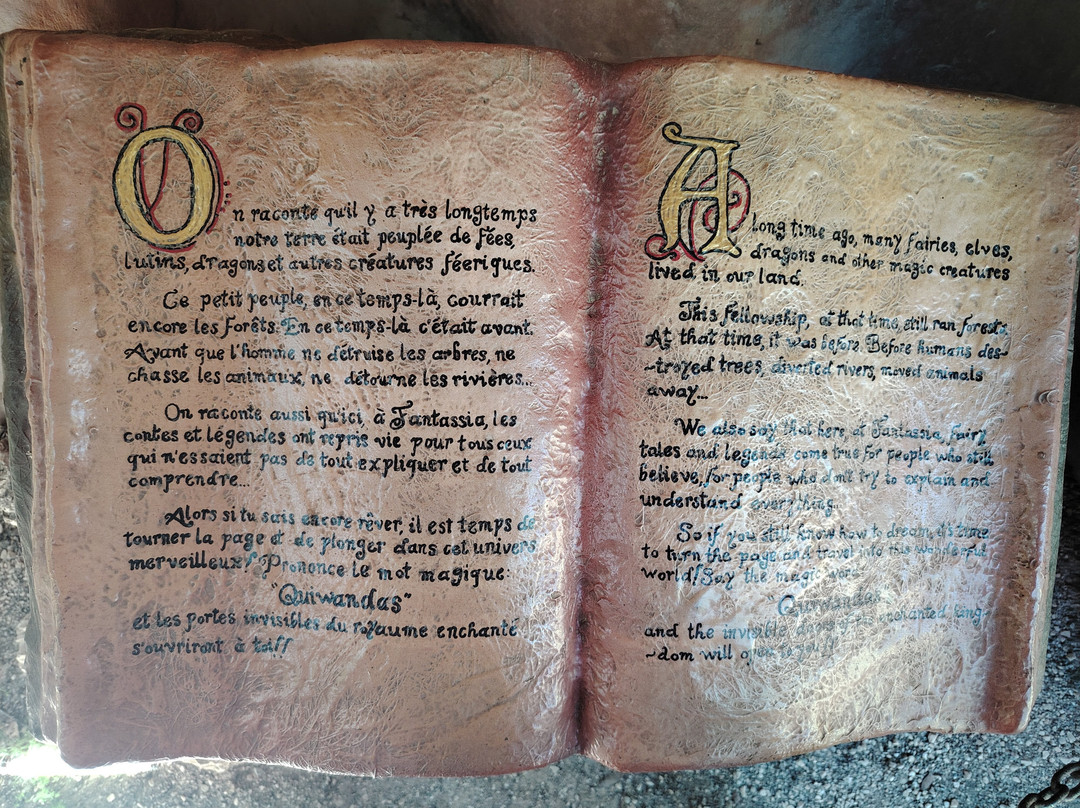 On raconte qu'il y a très longtemps
notre terre était peuplée de fées,
lutins, dragons et autres créatures féeriques.
Ce petit peuple, en ce temps-là, courrait
encore les forêts. En ce temps-là c'était avant.
Avant que l'homme ne détruise les arbres, ne
chasse les animaux, ne détourne les rivières...
On raconte aussi qu'ici, à Fantassia, les
contes et légendes ont repris vie pour tous ceux
qui n'essaient pas de tout expliquer et de tout
comprendre...
Alors si tu sais encore rêver, il est temps de
tourner la page et de plonger dans cet univers
merveilleux! Prononce le mot magique:
"Quiwandas"
et les portes invisibles du royaume enchanté
s'ouvriront à toi!!
A long time ago, many fairies, elves,
dragons and other magic creatures
lived in our land.
This fellowship, at that time, still ran forests.
At that time, it was before. Before humans des-
-troyed trees, diverted rivers, moved animals
away...
We also say that here, at Fantassia, fairy
tales and legends come true for people who still
believe, for people who don't try to explain and
understand everything.
So if you still know how to dream, it's time
to turn the page and travel into this wonderful
world! Say the magic word
Quiwandas
and the invisible doors of the enchanted king-
-dom will open to you!!